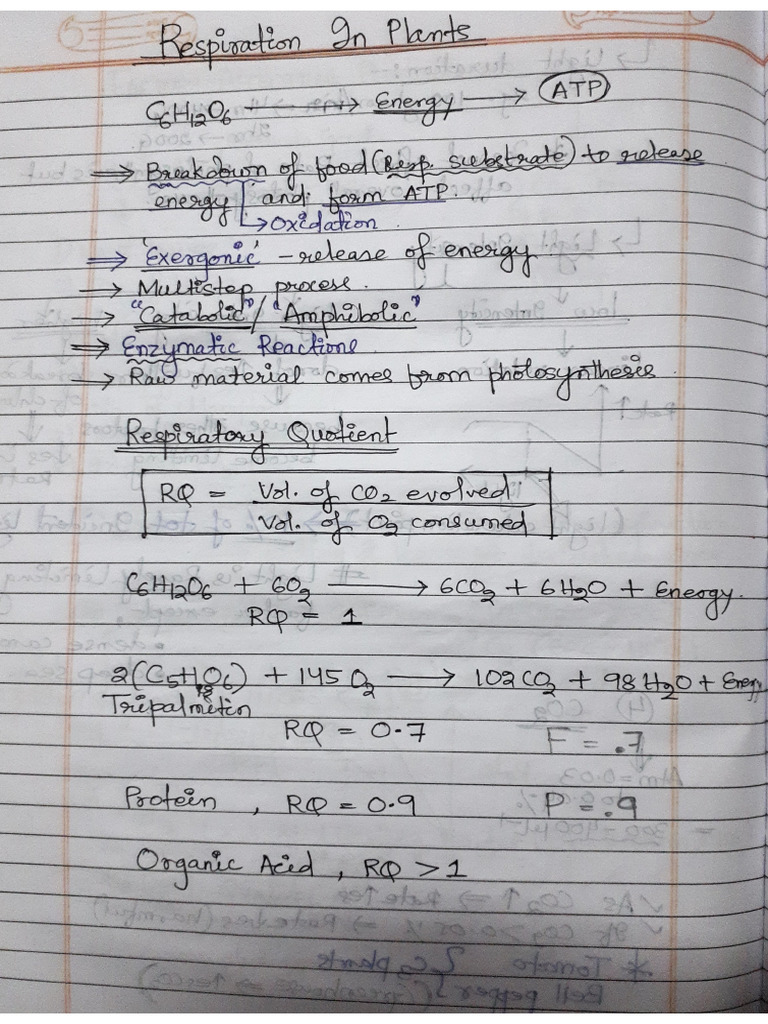 Respiration In Plants
C6H12O6 → Energy → ATP
⇒ Breakdown of food (Resp. substrate) to release
energy and form ATP.
↳ Oxidation
⇒ 'Exergonic' - release of energy.
→ Multistep process.
→ "Catabolic" / "Amphibolic"
⇒ Enzymatic Reactions
→ Raw material comes from photosynthesis.
Respiratory Quotient
RQ = Vol. of CO2 evolved
Vol. of O2 consumed
C6H12O6 + 6O2 → 6CO2 + 6H2O + Energy.
RQ = 1
2(C51H98O6) + 145 O2 → 102CO2 + 98H2O + Energy
Tripalmitin
RQ = 0.7 F = .7
Protein, RQ = 0.9 P = .9
Organic Acid, RQ > 1